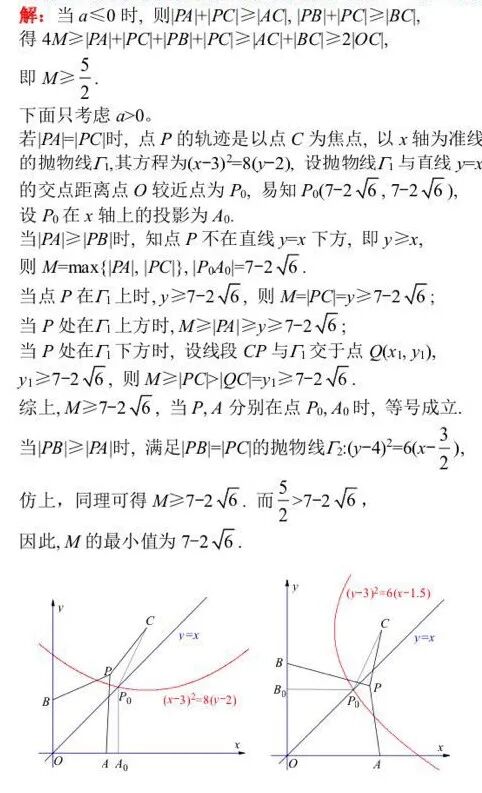 解：当 a≤0 时, 则|PA|+|PC|≥|AC|, |PB|+|PC|≥|BC|,
得 4M≥|PA|+|PC|+|PB|+|PC|≥|AC|+|BC|≥2|OC|,
即 M≥5/2.
下面只考虑 a>0。
若|PA|=|PC|时, 点 P 的轨迹是以点 C 为焦点, 以 x 轴为准线
的抛物线Γ₁,其方程为(x−3)²=8(y−2), 设抛物线Γ₁与直线 y=x
的交点距离点 O 较近点为 P₀, 易知 P₀(7−2√6, 7−2√6),
设 P₀ 在 x 轴上的投影为 A₀.
当|PA|≥|PB|时, 知点 P 不在直线 y=x 下方, 即 y≥x,
则 M=max{|PA|, |PC|}, |P₀A₀|=7−2√6.
当点 P 在Γ₁上时, y≥7−2√6, 则 M=|PC|=y≥7−2√6;
当 P 处在Γ₁上方时, M≥|PA|≥y≥7−2√6;
当 P 处在Γ₁下方时, 设线段 CP 与Γ₁交于点 Q(x₁, y₁),
y₁≥7−2√6, 则 M≥|PC|>|QC|=y₁≥7−2√6.
综上, M≥7−2√6, 当 P, A 分别在点 P₀, A₀ 时, 等号成立.
当|PB|≥|PA|时, 满足|PB|=|PC|的抛物线Γ₂:(y−4)²=6(x−3/2),
仿上，同理可得 M≥7−2√6. 而5/2>7−2√6,
因此, M 的最小值为 7−2√6.
y
C
y=x
P
P₀
B
(x−3)²=8(y−2)
x
O
A
A₀
y
(y−3)²=6(x−1.5)
C
y=x
B
B₀
P
P₀
x
O
A